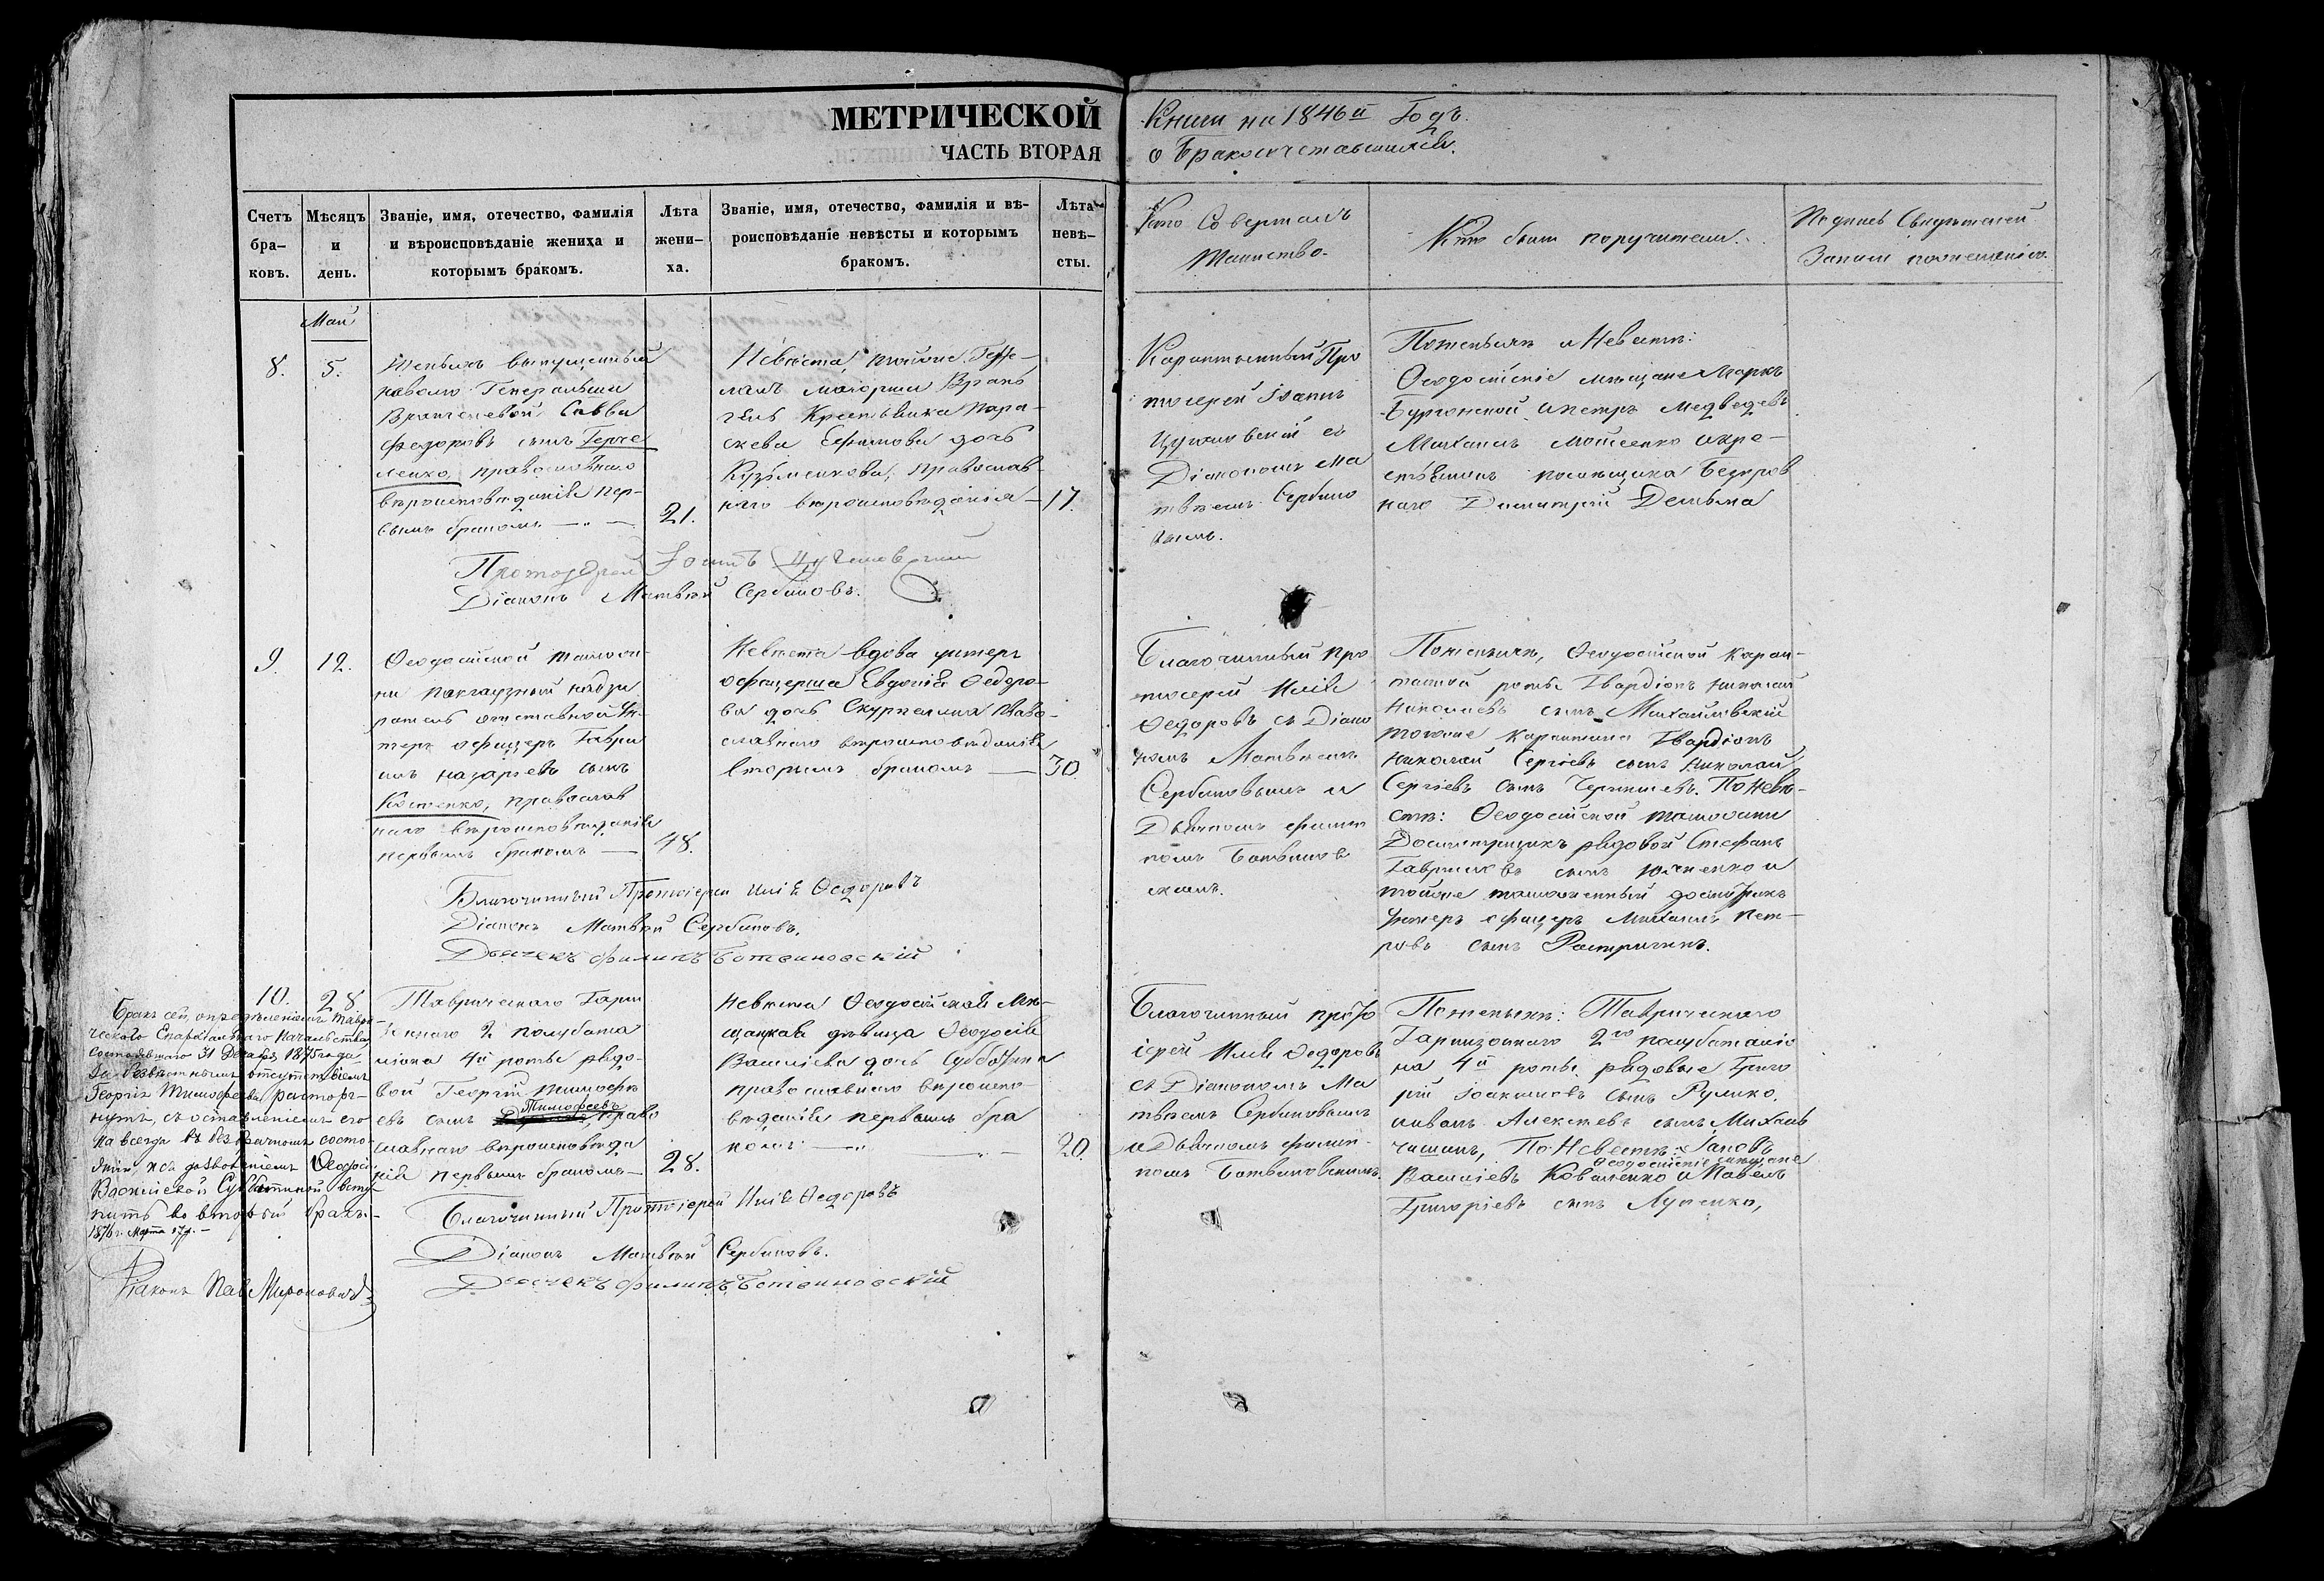 МЕТРИЧЕСКОЙ
ЧАСТЬ ВТОРАЯ
Книги на 1846й Годъ.
о Бракосочетавшихся.
Счетъ бра-
ковъ.
Мѣсяцъ
и
день.
Званіе, имя, отечество, фамилія
и вѣроисповѣданіе жениха и
которымъ бракомъ.
Лѣта
жени-
ха.
Званіе, имя, отечество, фамилія и вѣ-
роисповѣданіе невѣсты и которымъ
бракомъ.
Лѣта
невѣ-
сты.
Кто Совершалъ
Таинство.
Кто были поручители.
Подпись Свидѣтелей
Записи по желанію.
Май
8.
5.
Женихъ выпущенный
на волю Генеральши
Врангелевой Савва
Федоровъ сынъ
ленко, православнаго
вѣроисповѣданія пер-
вымъ бракомъ
21.
Невѣста,
маіорши Вран
гель Крестьянка Пара-
скева Ефимова дочь
Кузьменкова, православ-
наго вѣроисповѣданія
17.
Карантинный Про
тоіерей Іоаннъ
съ
Діакономъ Ма
твѣемъ Сербино
вымъ.
По женихѣ и Невѣстѣ:
Ѳеодосійскіе мѣщане Марко
и Петръ Медведевъ
Михаилъ Мойсеенко и кре-
стьянинъ помѣщика
наго Димитрій
Протоіерей Іоаннъ
Діаконъ Матвѣй Сербиновъ.
9.
12.
Ѳеодосійской таможни
пакгаузный надзи
ратель отставной Ун-
теръ офицеръ Гаври
илъ Назарьевъ сынъ
Костенко, православ
наго вѣроисповѣданія
первымъ бракомъ
48.
Невѣста вдова унтеръ
офицерша Евдокія Ѳедоро-
ва дочь Скурпелина Право-
славнаго вѣроисповѣданія
вторымъ бракомъ
30.
Благочинный Про
тоіерей Илія
Ѳедоровъ съ Діако
номъ Матвѣемъ
Сербиновымъ и
Дьячкомъ Филип
помъ Ботвинов
скимъ.
По женихѣ, Ѳеодосійской каран-
тинной роты Гвардіонъ Николай
Николаевъ сынъ Михайловскій
тогоже карантина Гвардіонъ
Николай Сергіевъ сынъ Николай
Сергіевъ сынъ Чернышевъ. По Невѣ-
стѣ: Ѳеодосійской таможни
Досмотрщикъ рядовой Стефанъ
Гавриловъ сынъ Юрченко и
тойже таможенный
Унтеръ офицеръ Михаилъ Пет-
ровъ сынъ Растригинъ.
Благочинный Протоіерей Илія Ѳедоровъ
Діаконъ Матвѣй Сербиновъ.
Дьячекъ Филипъ Ботвиновскій
10.
28
Таврическаго Гарни
зоннаго 2 полубата
ліона 4й роты рядо-
вой Георгій Тимофѣ
евъ сынъ Тимофеевъ право
славнаго вѣроисповѣда
нія первымъ бракомъ
28.
Невѣста Ѳеодосійская Мѣ-
щанка дѣвица Ѳеодосія
Василіева дочь Субботина
православнаго вѣроиспо-
вѣданія первымъ бра
комъ
20.
Благочинный прото
іерей Илія Ѳедоровъ
съ Діакономъ Ма
твѣемъ Сербиновымъ
и Дьячкомъ Филип-
помъ Ботвиновскимъ.
По женихѣ: Таврическаго
Гарнизоннаго 2го полубаталіо
на 4й роты рядовые Григо
рій Іоакимовъ сынъ Рулико.
Алексѣевъ сынъ
По Невѣстѣ: Іаковъ
Ѳеодосійскіе мѣщане
Василіевъ Коваленко и Павелъ
Григоріевъ сынъ Луценко,
Благочинный Протоіерей Илія Ѳедоровъ
Діаконъ Матвѣй Сербиновъ.
Дьячекъ Филипъ Ботвиновскій
Бракъ сей, опредѣленіемъ Таври-
ческаго Епархіальнаго Начальства,
состоявшагося 31 Декабря 1875 года
за безвѣстнымъ отсутствіемъ
Георгія Тимофеева, расторг-
нутъ, съ оставленіемъ его
навсегда въ безбрачномъ состо-
яніи и съ дозволеніемъ Ѳеодосіи
Васильевой Субботиной всту-
пить во вторый бракъ.
1876 г. Марта 17 д.
Діаконъ Пав. Мироновичъ